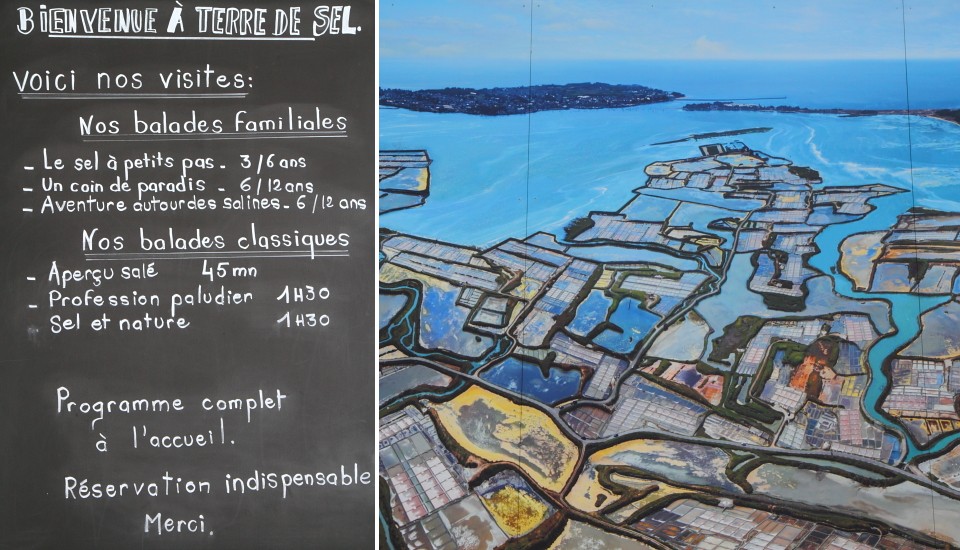 BIENVENUE À TERRE DE SEL.
Voici nos visites:
Nos balades familiales
- Le sel à petits pas - 3/6 ans
- Un coin de paradis - 6/12 ans
- Aventure autour des salines - 6/12 ans
Nos balades classiques
- Aperçu salé 45mn
- Profession paludier 1H30
Sel et nature 1H30
Programme complet
à l'accueil.
Réservation indispensable
Merci.